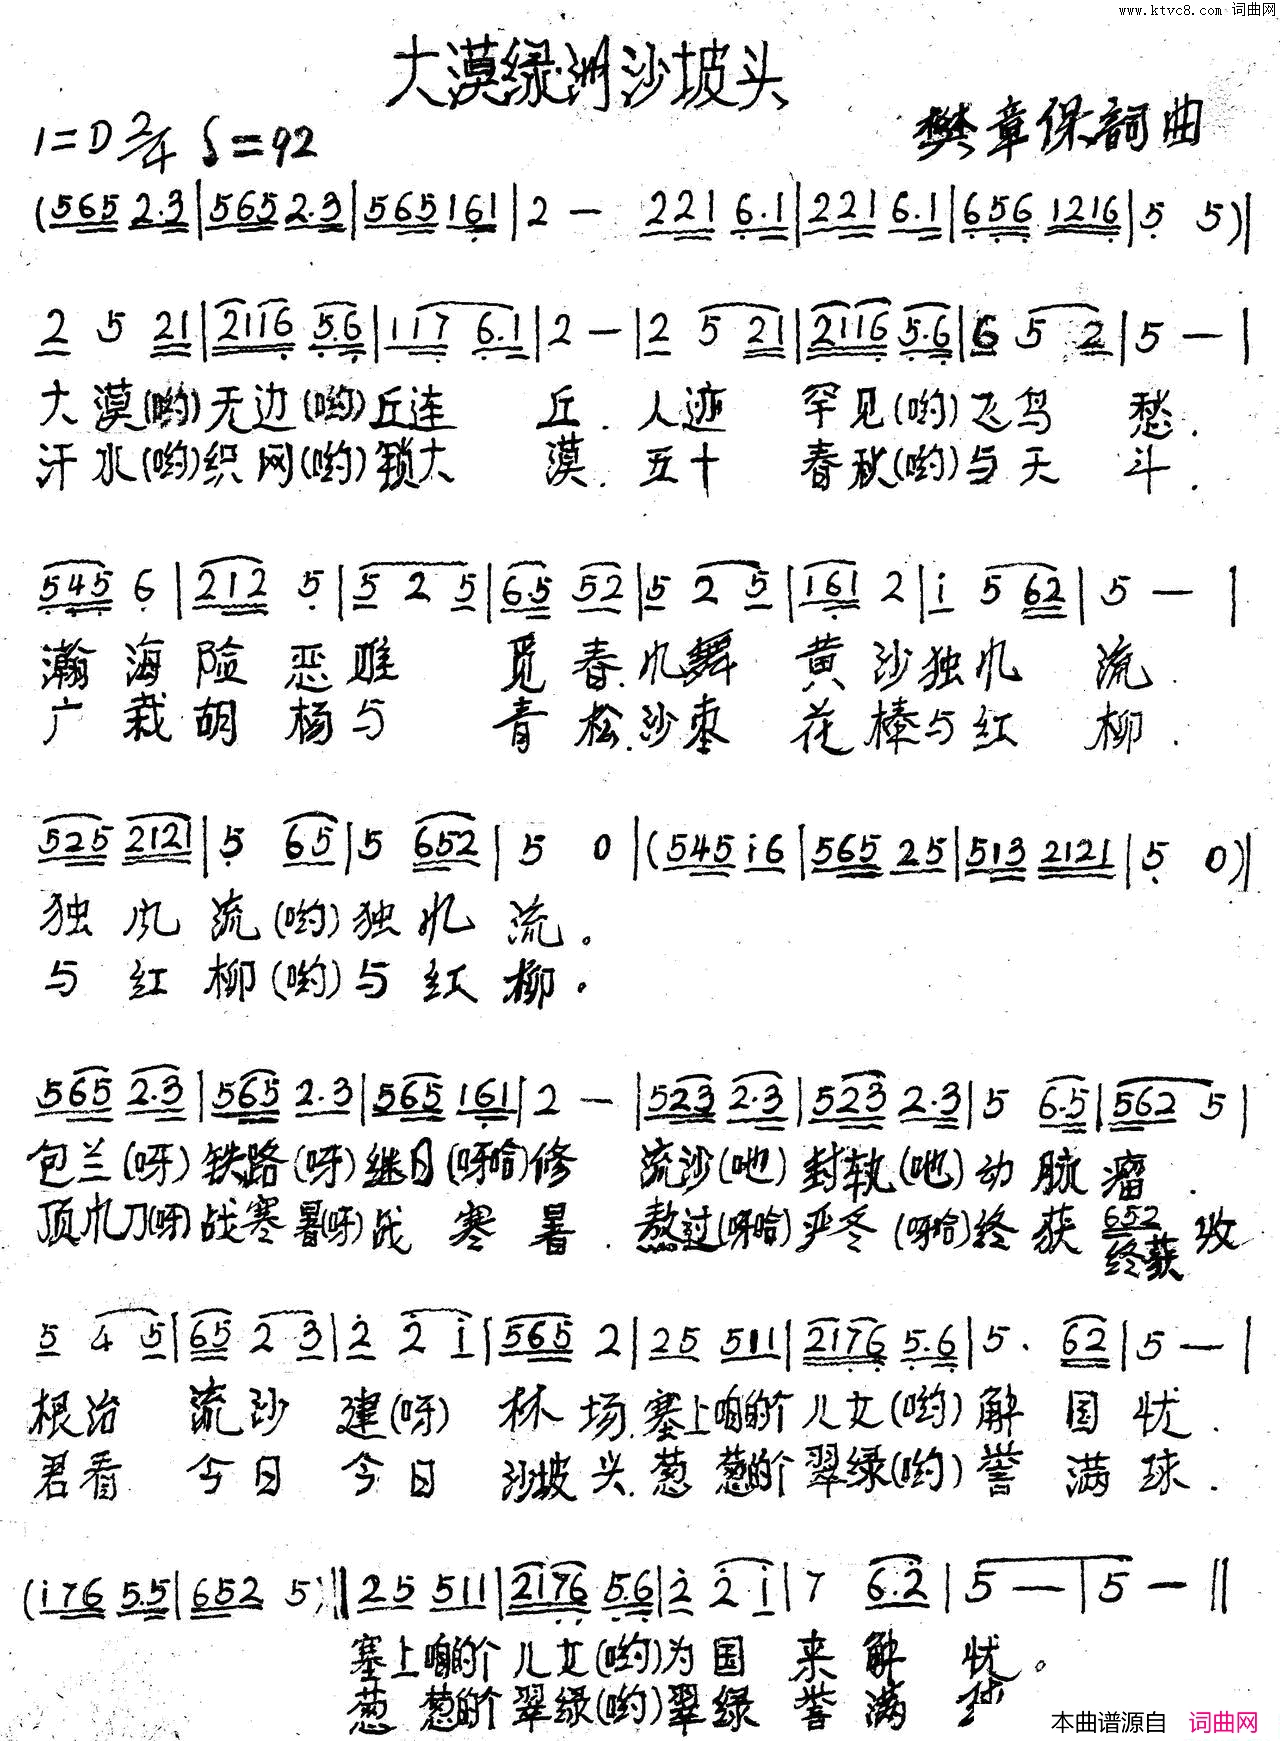 www.ktvc8.com 词曲网
大漠绿洲沙坡头
1=D 2/4 ♩=92
樊章保詞曲
(565 2.3|565 2.3|565 161|2 — 221 6.1|221 6.1|656 1216|5 5)|
2 5 21|2116 5.6|117 6.1|2 —|2 5 21|2116 5.6|6 5 2|5 —|
大漠(哟)无边(哟)丘连 丘.人迹 罕见(哟)飞鸟 愁.
汗水(哟)织网(哟)锁大 漠.五十 春秋(哟)与天 斗.
545 6|212 5|5 2 5|6.5 52|5 2 5|161 2|i 5 62|5 —|
瀚海险恶难 觅春.风舞 黄沙独风 流.
广栽胡杨与 青松.沙枣 花棒与红 柳.
525 2121|5 65|5 652|5 0|(545 i6|565 25|513 2121|5 0)|
独风流(哟)独风流。
与红柳(哟)与红柳。
565 2.3|565 2.3|565 161|2 —|523 2.3|523 2.3|5 6.5|562 5|
包兰(呀)铁路(呀)继日(呀哈)修 流沙(吔)封轨(吔)动脉瘤.
顶风刀(呀)战寒暑(呀)战寒暑.熬过(呀哈)严冬(呀哈)终获 652 收
终获
5 4 5|65 2 3|2 2 i|565 2|25 511|2176 5.6|5. 62|5 —|
根治 流沙 建(呀) 林场.塞上咱的个儿女(哟)解国忧.
君看 今日 今日 沙坡头.葱葱的个翠绿(哟)誉满球.
(i76 5.5|652 5)‖25 511|2176 5.6|2 2 i|7 6.2|5 —|5 —‖
塞上咱的个儿女(哟)为国来解忧。
葱葱的个翠绿(哟)翠绿誉满
本曲谱源自 词曲网